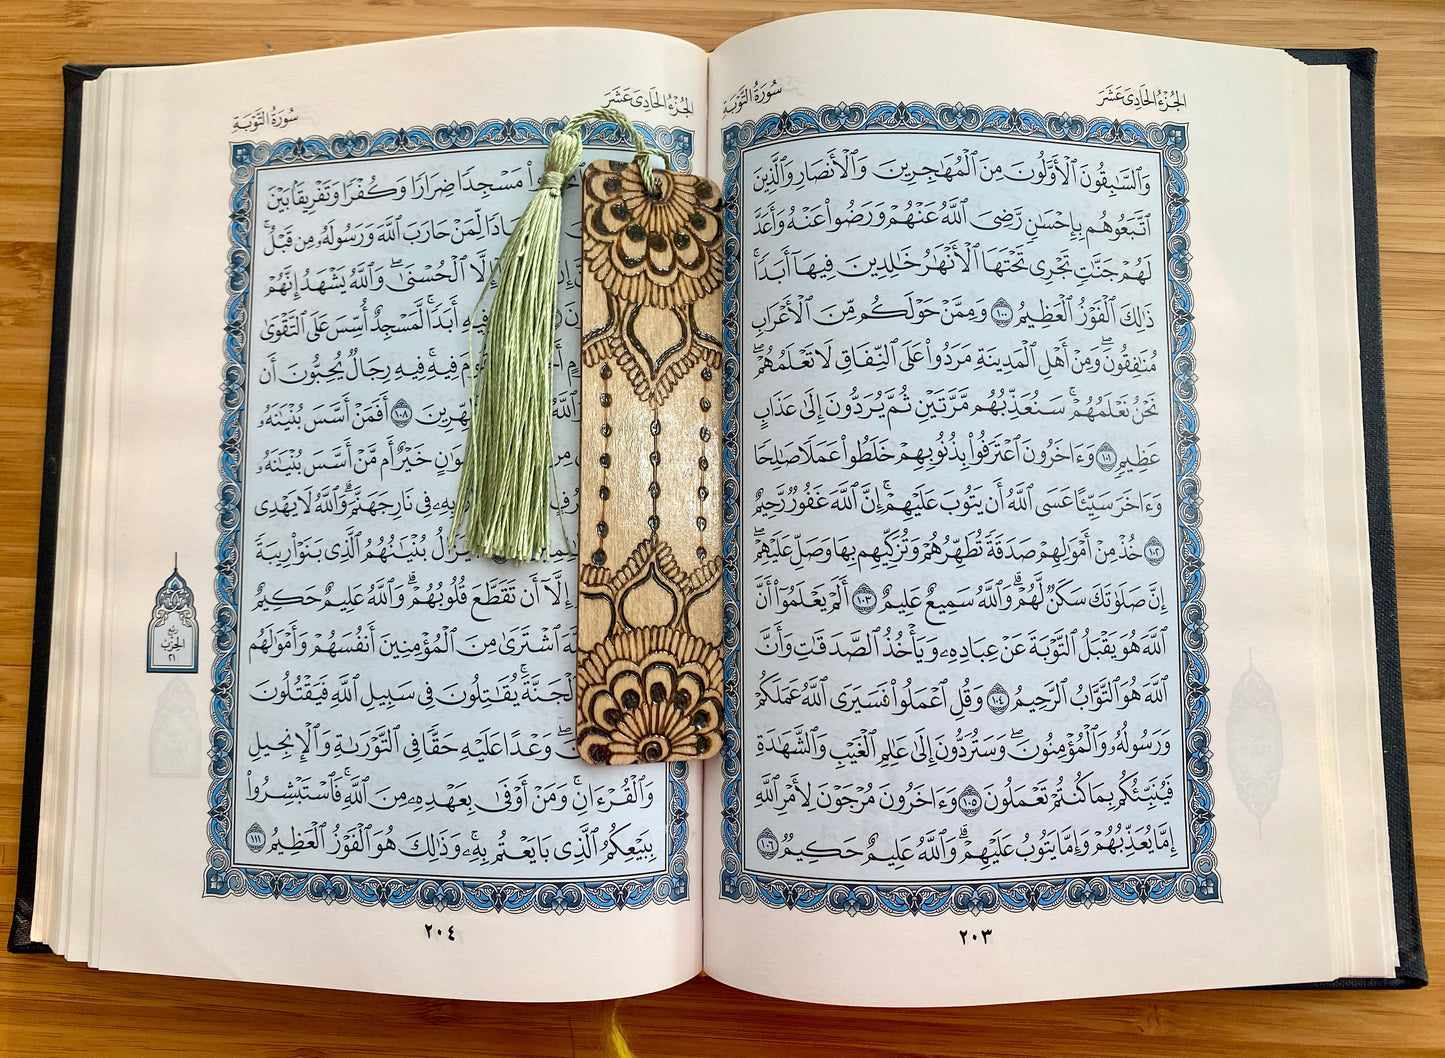 الجُزْءُ الحَادِي عَشَرَ
سُورَةُ التَّوْبَةِ
وَٱلسَّٰبِقُونَ ٱلْأَوَّلُونَ مِنَ ٱلْمُهَٰجِرِينَ وَٱلْأَنصَارِ وَٱلَّذِينَ
ٱتَّبَعُوهُم بِإِحْسَٰنٍ رَّضِىَ ٱللَّهُ عَنْهُمْ وَرَضُوا۟ عَنْهُ وَأَعَدَّ
لَهُمْ جَنَّٰتٍ تَجْرِى تَحْتَهَا ٱلْأَنْهَٰرُ خَٰلِدِينَ فِيهَآ أَبَدًا ۚ
ذَٰلِكَ ٱلْفَوْزُ ٱلْعَظِيمُ ١٠٠ وَمِمَّنْ حَوْلَكُم مِّنَ ٱلْأَعْرَابِ
مُنَٰفِقُونَ ۖ وَمِنْ أَهْلِ ٱلْمَدِينَةِ مَرَدُوا۟ عَلَى ٱلنِّفَاقِ لَا تَعْلَمُهُمْ ۖ
نَحْنُ نَعْلَمُهُمْ ۚ سَنُعَذِّبُهُم مَّرَّتَيْنِ ثُمَّ يُرَدُّونَ إِلَىٰ عَذَابٍ
عَظِيمٍ ١٠١ وَءَاخَرُونَ ٱعْتَرَفُوا۟ بِذُنُوبِهِمْ خَلَطُوا۟ عَمَلًا صَٰلِحًا
وَءَاخَرَ سَيِّئًا عَسَى ٱللَّهُ أَن يَتُوبَ عَلَيْهِمْ ۚ إِنَّ ٱللَّهَ غَفُورٌ رَّحِيمٌ
١٠٢ خُذْ مِنْ أَمْوَٰلِهِمْ صَدَقَةً تُطَهِّرُهُمْ وَتُزَكِّيهِم بِهَا وَصَلِّ عَلَيْهِمْ ۖ
إِنَّ صَلَوٰتَكَ سَكَنٌ لَّهُمْ ۗ وَٱللَّهُ سَمِيعٌ عَلِيمٌ ١٠٣ أَلَمْ يَعْلَمُوٓا۟ أَنَّ
ٱللَّهَ هُوَ يَقْبَلُ ٱلتَّوْبَةَ عَنْ عِبَادِهِۦ وَيَأْخُذُ ٱلصَّدَقَٰتِ وَأَنَّ
ٱللَّهَ هُوَ ٱلتَّوَّابُ ٱلرَّحِيمُ ١٠٤ وَقُلِ ٱعْمَلُوا۟ فَسَيَرَى ٱللَّهُ عَمَلَكُمْ
وَرَسُولُهُۥ وَٱلْمُؤْمِنُونَ ۖ وَسَتُرَدُّونَ إِلَىٰ عَٰلِمِ ٱلْغَيْبِ وَٱلشَّهَٰدَةِ
فَيُنَبِّئُكُم بِمَا كُنتُمْ تَعْمَلُونَ ١٠٥ وَءَاخَرُونَ مُرْجَوْنَ لِأَمْرِ ٱللَّهِ
إِمَّا يُعَذِّبُهُمْ وَإِمَّا يَتُوبُ عَلَيْهِمْ ۗ وَٱللَّهُ عَلِيمٌ حَكِيمٌ ١٠٦
٢٠٣
الجُزْءُ الحَادِي عَشَرَ
سُورَةُ التَّوْبَةِ
مَسْجِدًا ضِرَارًا وَكُفْرًا وَتَفْرِيقًۢا بَيْنَ
لِّمَنْ حَارَبَ ٱللَّهَ وَرَسُولَهُۥ مِن قَبْلُ ۚ
إِلَّا ٱلْحُسْنَىٰ ۖ وَٱللَّهُ يَشْهَدُ إِنَّهُمْ
فِيهِ أَبَدًا ۚ لَّمَسْجِدٌ أُسِّسَ عَلَى ٱلتَّقْوَىٰ
فِيهِ ۚ فِيهِ رِجَالٌ يُحِبُّونَ أَن
١٠٨ أَفَمَنْ أَسَّسَ بُنْيَٰنَهُۥ
خَيْرٌ أَم مَّنْ أَسَّسَ بُنْيَٰنَهُۥ
بِهِۦ فِى نَارِ جَهَنَّمَ ۗ وَٱللَّهُ لَا يَهْدِى
بُنْيَٰنُهُمُ ٱلَّذِى بَنَوْا۟ رِيبَةً
إِلَّآ أَن تَقَطَّعَ قُلُوبُهُمْ ۗ وَٱللَّهُ عَلِيمٌ حَكِيمٌ
ٱشْتَرَىٰ مِنَ ٱلْمُؤْمِنِينَ أَنفُسَهُمْ وَأَمْوَٰلَهُم
ٱلْجَنَّةَ ۚ يُقَٰتِلُونَ فِى سَبِيلِ ٱللَّهِ فَيَقْتُلُونَ
وَعْدًا عَلَيْهِ حَقًّا فِى ٱلتَّوْرَىٰةِ وَٱلْإِنجِيلِ
وَٱلْقُرْءَانِ ۚ وَمَنْ أَوْفَىٰ بِعَهْدِهِۦ مِنَ ٱللَّهِ ۚ فَٱسْتَبْشِرُوا۟
بِبَيْعِكُمُ ٱلَّذِى بَايَعْتُم بِهِۦ ۚ وَذَٰلِكَ هُوَ ٱلْفَوْزُ ٱلْعَظِيمُ ١١١
ربع
الحزب
٢١
٢٠٤